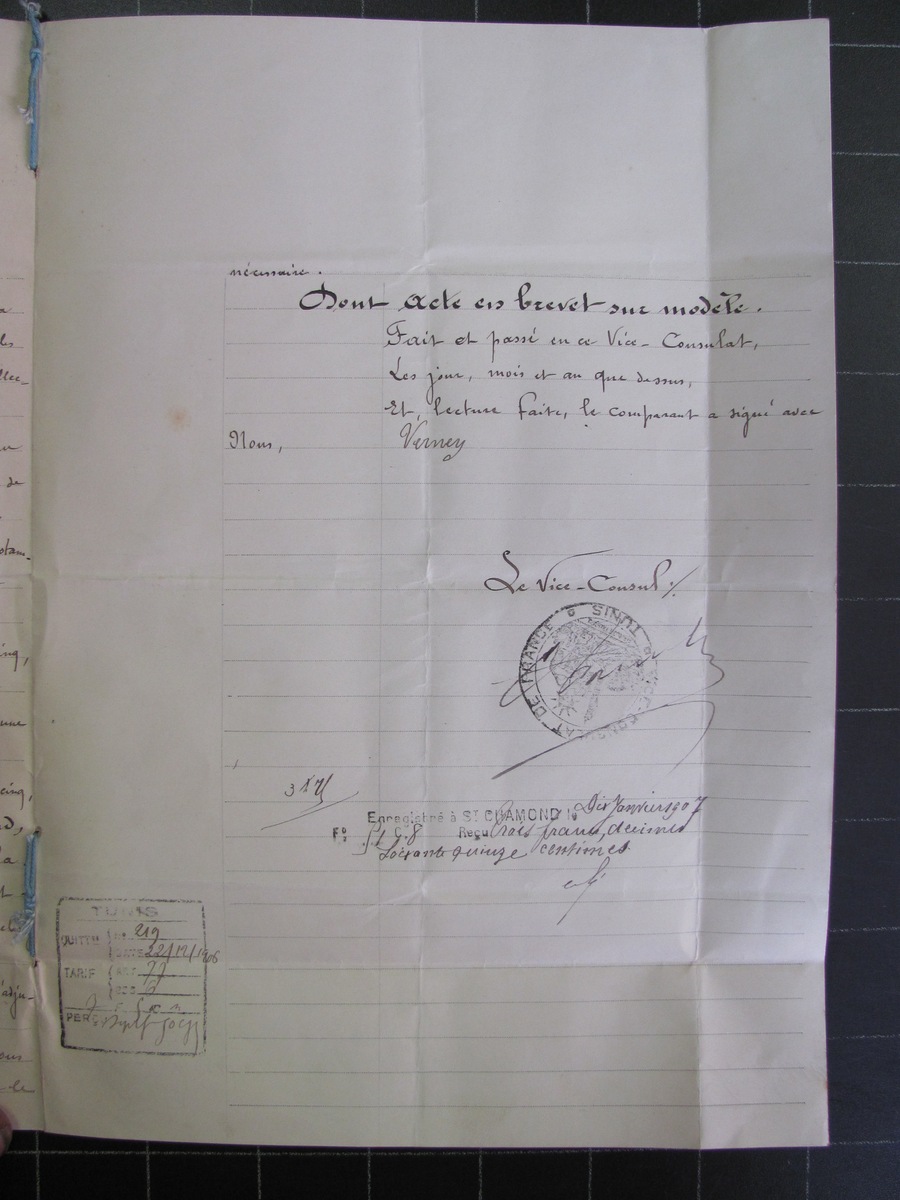 nécessaire.
Dont acte en brevet sur modèle.
Fait et passé en ce Vice-Consulat,
Les jour, mois et an que dessus,
Et, lecture faite, le comparant a signé avec
Nous,
Verney
Le Vice-Consul
VICE-CONSULAT DE FRANCE TUNIS
Enregistré à ST CHAMOND le Dix Janvier 1907
Fo 51 C. 8 Reçu trois francs, décimes
Soixante quinze centimes
TUNIS
QUITTCE No 219
DATE 22/12/1906
TARIF ART 77
PERÇU